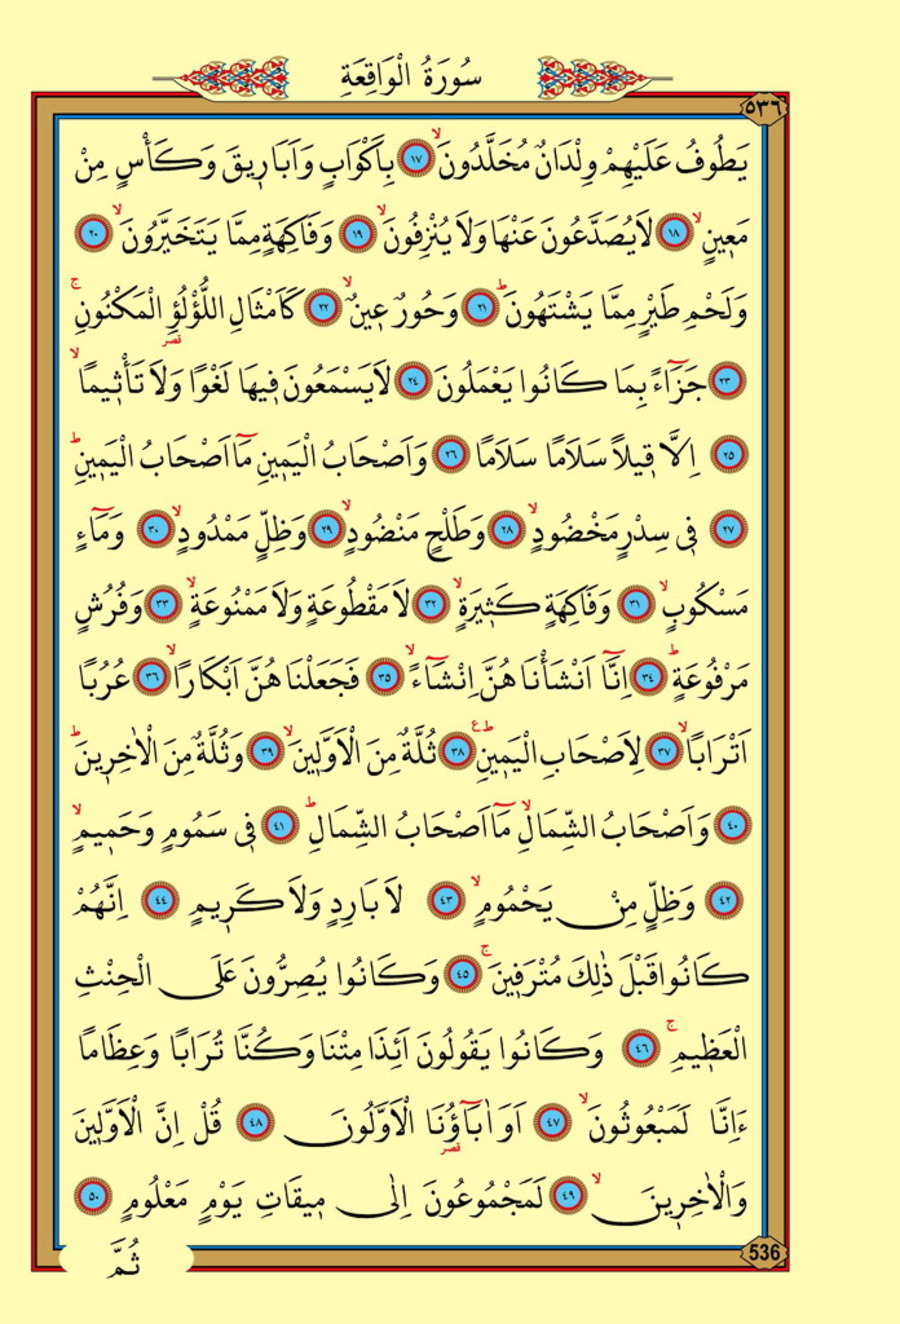 سُورَةُ الْوَاقِعَةِ
٥٣٦
يَطُوفُ عَلَيْهِمْ وِلْدَانٌ مُخَلَّدُونَۙ ﴿١٧﴾ بِاَكْوَابٍ وَاَبَارٖيقَ وَكَأْسٍ مِنْ
مَعٖينٍۙ ﴿١٨﴾ لَا يُصَدَّعُونَ عَنْهَا وَلَا يُنْزِفُونَۙ ﴿١٩﴾ وَفَاكِهَةٍ مِمَّا يَتَخَيَّرُونَۙ ﴿٢٠﴾
وَلَحْمِ طَيْرٍ مِمَّا يَشْتَهُونَۜ ﴿٢١﴾ وَحُورٌ عٖينٌۙ ﴿٢٢﴾ كَاَمْثَالِ اللُّؤْلُؤِ الْمَكْنُونِۚ
﴿٢٣﴾ جَزَٓاءً بِمَا كَانُوا يَعْمَلُونَ ﴿٢٤﴾ لَا يَسْمَعُونَ فٖيهَا لَغْوًا وَلَا تَأْثٖيمًاۙ
﴿٢٥﴾ اِلَّا قٖيلًا سَلَامًا سَلَامًا ﴿٢٦﴾ وَاَصْحَابُ الْيَمٖينِ مَٓا اَصْحَابُ الْيَمٖينِۜ
﴿٢٧﴾ فٖى سِدْرٍ مَخْضُودٍۙ ﴿٢٨﴾ وَطَلْحٍ مَنْضُودٍۙ ﴿٢٩﴾ وَظِلٍّ مَمْدُودٍۙ ﴿٣٠﴾ وَمَٓاءٍ
مَسْكُوبٍۙ ﴿٣١﴾ وَفَاكِهَةٍ كَثٖيرَةٍۙ ﴿٣٢﴾ لَا مَقْطُوعَةٍ وَلَا مَمْنُوعَةٍۙ ﴿٣٣﴾ وَفُرُشٍ
مَرْفُوعَةٍۜ ﴿٣٤﴾ اِنَّٓا اَنْشَأْنَاهُنَّ اِنْشَٓاءًۙ ﴿٣٥﴾ فَجَعَلْنَاهُنَّ اَبْكَارًاۙ ﴿٣٦﴾ عُرُبًا
اَتْرَابًاۙ ﴿٣٧﴾ لِاَصْحَابِ الْيَمٖينِۜ ع ﴿٣٨﴾ ثُلَّةٌ مِنَ الْاَوَّلٖينَۙ ﴿٣٩﴾ وَثُلَّةٌ مِنَ الْاٰخِرٖينَۜ
﴿٤٠﴾ وَاَصْحَابُ الشِّمَالِۙ مَٓا اَصْحَابُ الشِّمَالِۜ ﴿٤١﴾ فٖى سَمُومٍ وَحَمٖيمٍۙ
﴿٤٢﴾ وَظِلٍّ مِنْ يَحْمُومٍۙ ﴿٤٣﴾ لَا بَارِدٍ وَلَا كَرٖيمٍ ﴿٤٤﴾ اِنَّهُمْ
كَانُوا قَبْلَ ذٰلِكَ مُتْرَفٖينَۚ ﴿٤٥﴾ وَكَانُوا يُصِرُّونَ عَلَى الْحِنْثِ
الْعَظٖيمِۚ ﴿٤٦﴾ وَكَانُوا يَقُولُونَ اَئِذَا مِتْنَا وَكُنَّا تُرَابًا وَعِظَامًا
ءَاِنَّا لَمَبْعُوثُونَۙ ﴿٤٧﴾ اَوَ اٰبَٓاؤُ۬نَا الْاَوَّلُونَ ﴿٤٨﴾ قُلْ اِنَّ الْاَوَّلٖينَ
وَالْاٰخِرٖينَۙ ﴿٤٩﴾ لَمَجْمُوعُونَ اِلٰى مٖيقَاتِ يَوْمٍ مَعْلُومٍ ﴿٥٠﴾
536
ثُمَّ